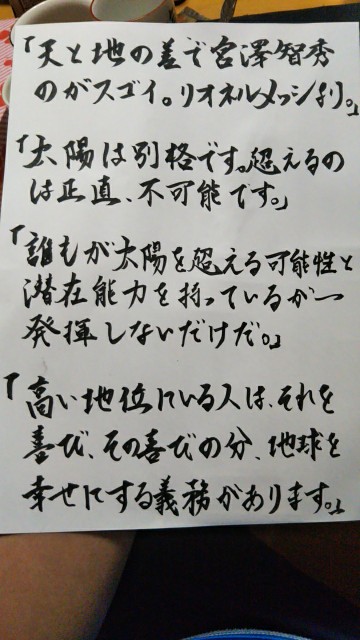 「天と地の差で宮澤智秀
のがスゴイ。リオネルメッシより。」
「太陽は別格です。超えるの
は正直、不可能です。」
「誰もが太陽を超える可能性と
潜在能力を持っているが一
発揮しないだけだ。」
「高い地位にいる人は、それを
喜び、その喜びの分、地球を
幸せにする義務があります。」